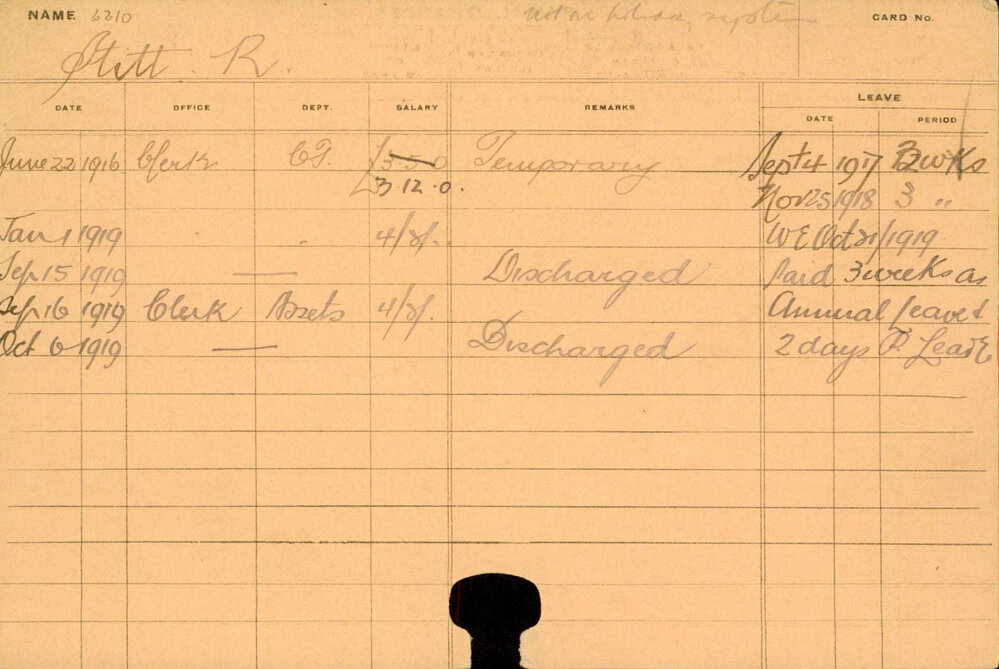 NAME 6210 not on holiday system CARD No.
Stitt. R.
DATE OFFICE DEPT. SALARY REMARKS LEAVE
DATE PERIOD
June 22 1916 Clerk £3.5.0 Temporary Sept 4 1917 2 wks
£3.12.0. Nov 25 1918 3 "
Jan 1 1919 4/8/. W E Oct 21/1919
Sep 15 1919 — Discharged Paid 3 weeks as
Sep 16 1919 Clerk Assets 4/8/. Annual leave &
Oct 6 1919 — Discharged 2 days P. Leave